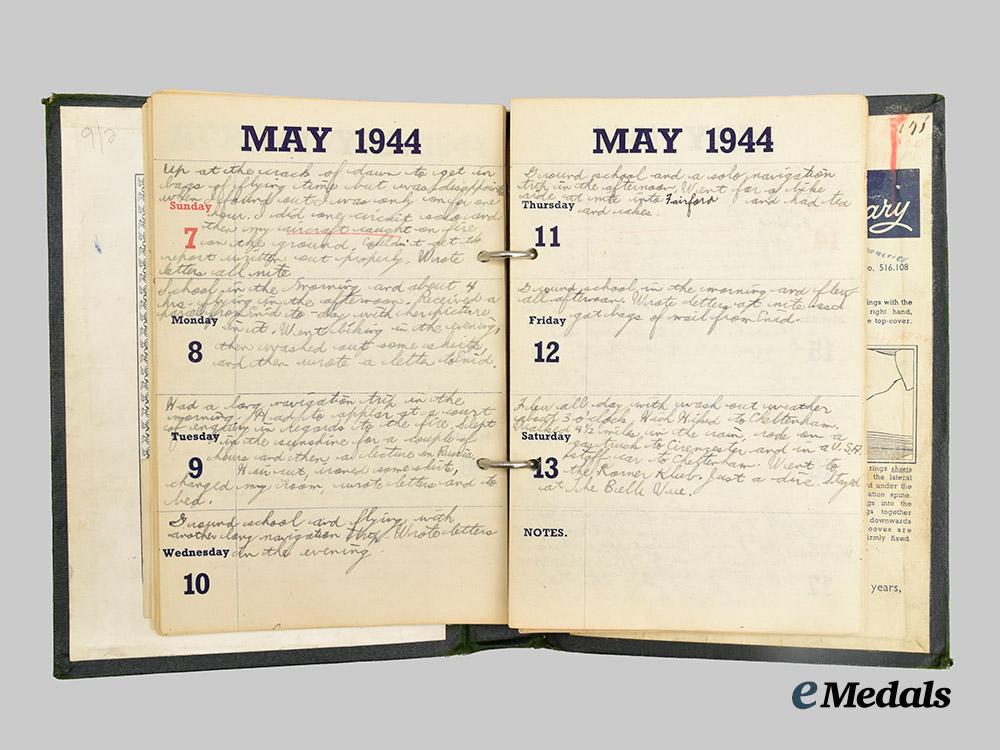 MAY 1944
Up at the crack of dawn to get in
bags of flying time but was disappointed
when I found out I was only on for one
Sunday
hour. I did one circuit solo and
7
then my aircraft caught on fire
on the ground. Couldn't get the
report written out properly. Wrote
letters all nite
School in the morning and about 4
hrs. flying in the afternoon. Received a
parcel from Enid to-day with her picture
Monday
in it. Went biking in the evening,
8
then washed out some shirts,
and then wrote a letter to Enid.
Had a long navigation trip in the
morning. Had to appear at a court
of enquiry in regards to the fire. Slept
Tuesday
in the sunshine for a couple of
9
hours and then a lecture on Russia.
Haircut, ironed some shirts,
changed my room, wrote letters and to
bed.
Ground school and flying, with
another long navigation trip. Wrote letters
Wednesday
in the evening.
10
MAY 1944
Ground school and a solo navigation
trip in the afternoon. Went for a bike
ride at nite into Fairford and had tea
Thursday
and cakes.
11
Ground school in the morning and flew
all afternoon. Wrote letters at nite and
Friday
got bags of mail from Enid.
12
Flew all day with wash out weather
about 3 o'clock. Hitch Hiked to Cheltenham.
Walked 4½ miles in the rain, rode on a
Saturday
gas truck to Cirencester and in a U.S.A.
13
staff car to Cheltenham. Went to
the Rover Klub. Just a dive. Stayed
at The Belle Vue.
NOTES.
ary
o. 516.108
ngs with the
right hand,
e top-cover.
rings sheets
the lateral
d under the
ation spine.
gs into the
gs together
downwards
ooves are
irmly fixed.
years,
eMedals